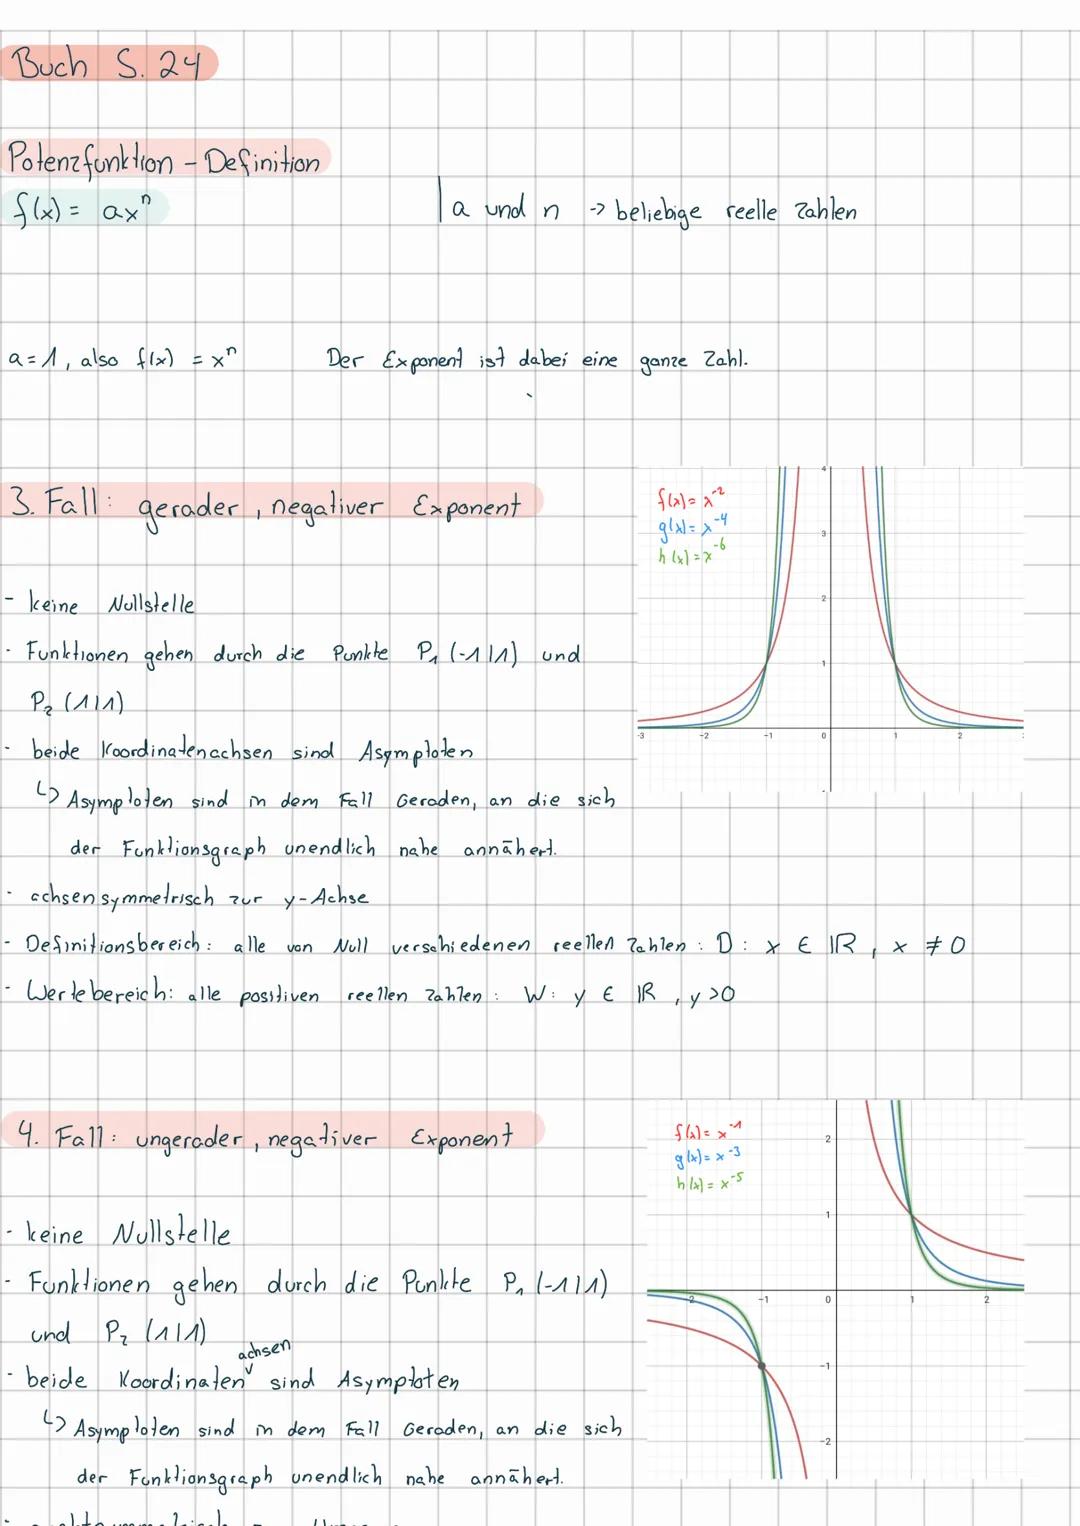 Buch S. 24
Potenzfunktion - Definition
f(x) = axⁿ | a und n -> beliebige reelle Zahlen
a = 1, also f(x) = xⁿ Der Exponent ist dabei eine ganze Zahl.
3. Fall: gerader, negativer Exponent
f(x) = x⁻²
g(x) = x⁻⁴
h(x) = x⁻⁶
4
3
2
1
-3 -2 -1 0 1 2
- keine Nullstelle
- Funktionen gehen durch die Punkte P₁ (-1|1) und
P₂ (1|1)
- beide Koordinatenachsen sind Asymptoten
↳ Asymptoten sind in dem Fall Geraden, an die sich
der Funktionsgraph unendlich nahe annähert.
- achsensymmetrisch zur y-Achse
- Definitionsbereich: alle von Null verschiedenen reellen Zahlen: D: x ∈ ℝ, x ≠ 0
- Wertebereich: alle positiven reellen Zahlen: W: y ∈ ℝ, y >0
4. Fall: ungerader, negativer Exponent
f(x) = x⁻¹
g(x) = x⁻³
h(x) = x⁻⁵
2
1
-2 -1 0 1 2
-1
-2
- keine Nullstelle
- Funktionen gehen durch die Punkte P₁ (-1|1)
und P₂ (1|1)
- beide Koordinatenachsen sind Asymptoten
↳ Asymptoten sind in dem Fall Geraden, an die sich
der Funktionsgraph unendlich nahe annähert.